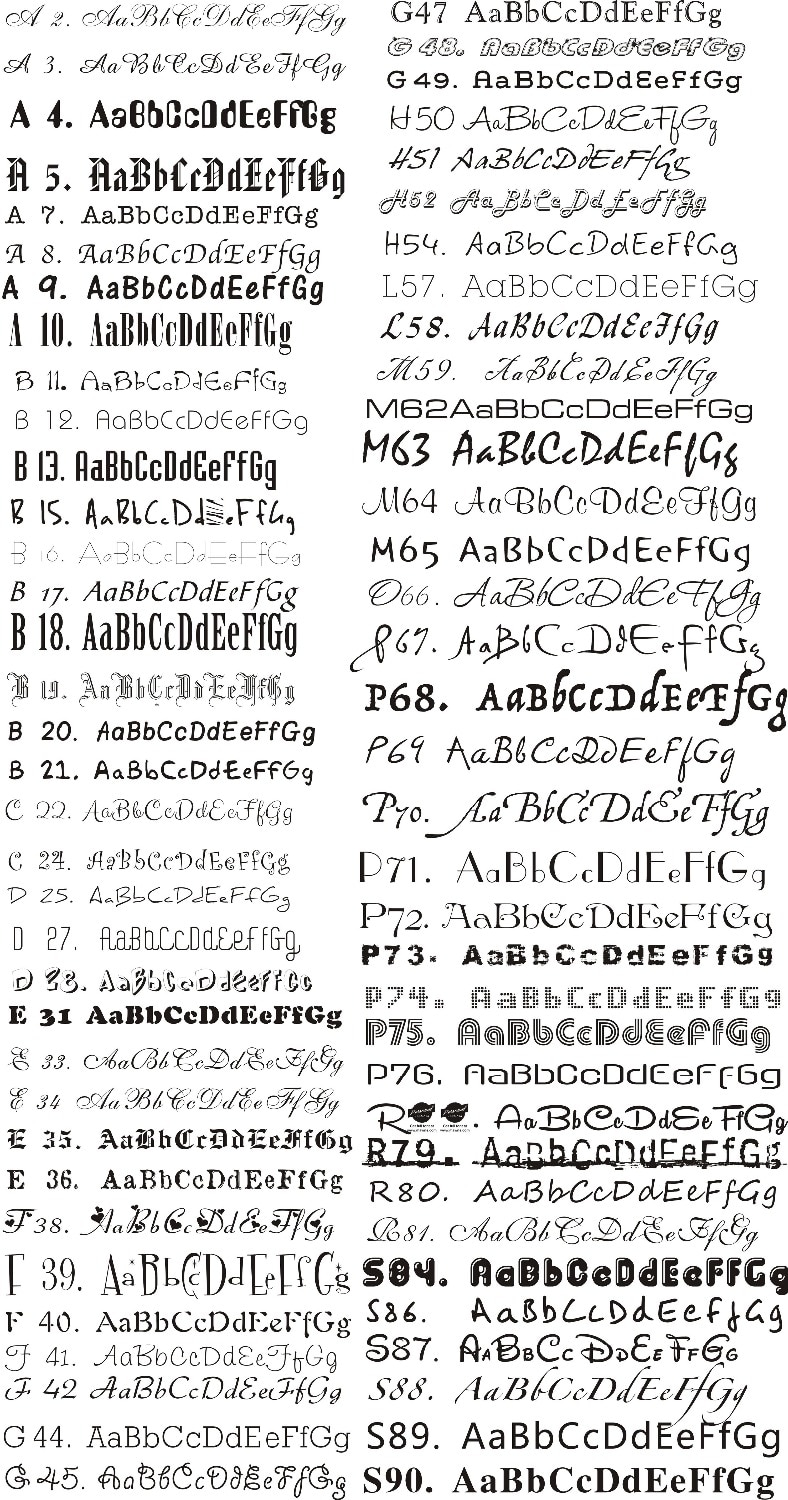 A 2. AaBbCcDdEeFfGg
A 3. AaBbCcDdEeFfGg
A 4. AaBbCcDdEeFfGg
A 5. AaBbCcDdEeFfGg
A 7. AaBbCcDdEeFfGg
A 8. AaBbCcDdEeFfGg
A 9. AaBbCcDdEeFfGg
A 10. AaBbCcDdEeFfGg
B 11. AaBbCcDdEeFfGg
B 12. AaBbCcDdEeFfGg
B 13. AaBbCcDdEeFfGg
B 15. AaBbCcDd eFfGg
B 16. AaBbCcDdEeFfGg
B 17. AaBbCcDdEeFfGg
B 18. AaBbCcDdEeFfGg
B 19. AaBbCcDdEeFfGg
B 20. AaBbCcDdEeFfGg
B 21. AaBbCcDdEeFfGg
C 22. AaBbCcDdEeFfGg
C 24. AaBbCcDdEeFfGg
D 25. AaBbCcDdEeFfGg
D 27. AaBbCcDdEeFfGg
D 28. AaBbCcDdEeFfGg
E 31 AaBbCcDdEeFfGg
E 33. AaBbCcDdEeFfGg
E 34 AaBbCcDdEeFfGg
E 35. AaBbCcDdEeFfGg
E 36. AaBbCcDdEeFfGg
F 38. AaBbCcDdEeFfGg
F 39. AaBbCcDdEeFfGg
F 40. AaBbCcDdEeFfGg
F 41. AaBbCcDdEeFfGg
F 42 AaBbCcDdEeFfGg
G 44. AaBbCcDdEeFfGg
G 45. AaBbCcDdEeFfGg
G47 AaBbCcDdEeFfGg
G 48. AaBbCcDdEeFfGg
G 49. AaBbCcDdEeFfGg
H50 AaBbCcDdEeFfGg
H51 AaBbCcDdEeFfGg
H52 AaBbCcDdEeFfGg
H54. AaBbCcDdEeFfGg
L57. AaBbCcDdEeFfGg
L58. AaBbCcDdEeFfGg
M59. AaBbCcDdEeFfGg
M62AaBbCcDdEeFfGg
M63 AaBbCcDdEeFfGg
M64 AaBbCcDdEeFfGg
M65 AaBbCcDdEeFfGg
O66. AaBbCcDdEeFfGg
P67. AaBbCcDdEeFfGg
P68. AaBbCcDdEeFfGg
P69 AaBbCcDdEeFfGg
P70. AaBbCcDdEeFfGg
P71. AaBbCcDdEeFfGg
P72. AaBbCcDdEeFfGg
P73. AaBbCcDdEeFfGg
P74. AaBbCcDdEeFfGg
P75. AaBbCcDdEeFfGg
P76. AaBbCcDdEeFfGg
R . AaBbCcDdEeFfGg
R79. AaBbCcDdEeFfGg
R80. AaBbCcDdEeFfGg
R81. AaBbCcDdEeFfGg
S84. AaBbCcDdEeFfGg
S86. AaBbCcDdEeFfGg
S87. AaBbCcDdEeFfGg
S88. AaBbCcDdEeFfGg
S89. AaBbCcDdEeFfGg
S90. AaBbCcDdEeFfGg